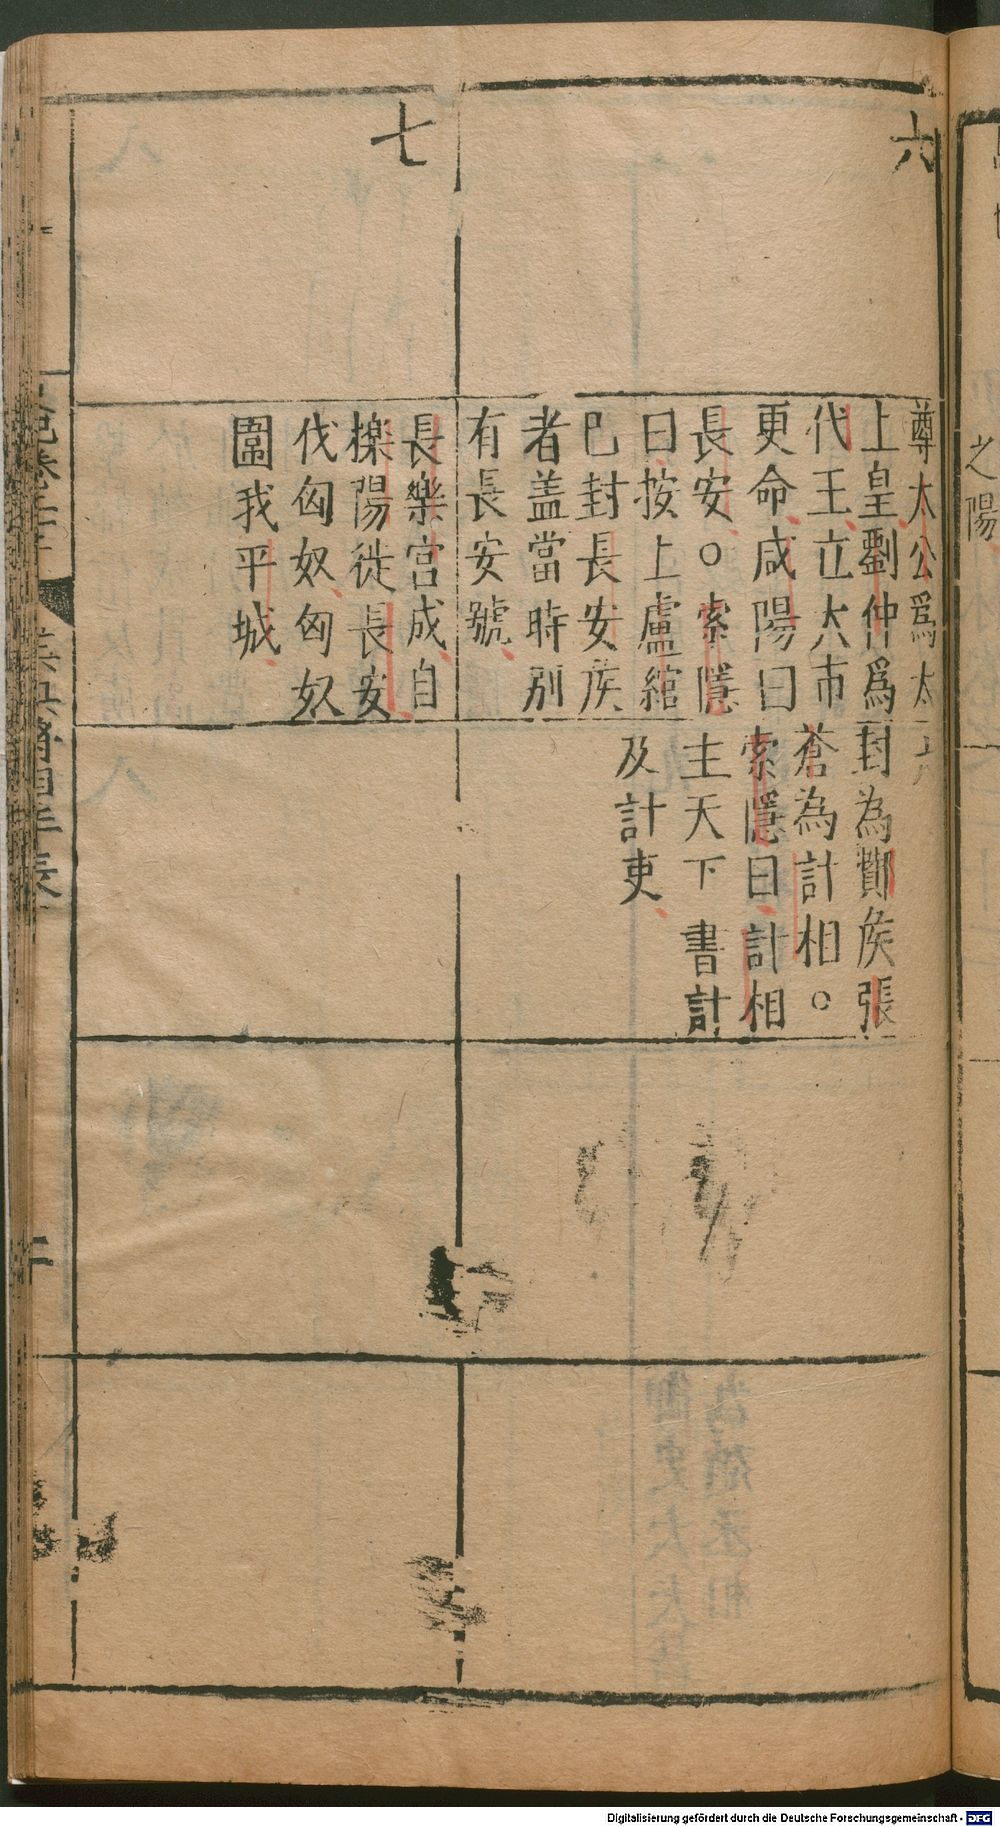 六
尊太公爲太
上皇劉仲爲
代王立大市
更命咸陽曰
長安○索隱
曰按上盧綰
已封長安侯
者盖當時別
有長安號
封為酇侯張
蒼為計相○
索隱曰計相
主天下書計
及計吏
七
長樂宫成自
櫟陽徙長安
伐匈奴匈奴
圍我平城
二
之陽
Digitalisierung gefördert durch die Deutsche Forschungsgemeinschaft - DFG